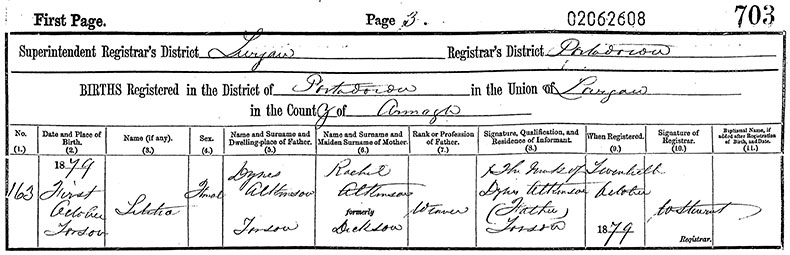 First Page. Page 3. 02062608 703
Superintendent Registrar's District Lurgan Registrar's District Portadown
BIRTHS Registered in the District of Portadown in the Union of Lurgan
in the County of Armagh
No. (1.) Date and Place of Birth. (2.) Name (if any). (3.) Sex. (4.) Name and Surname and Dwelling-place of Father. (5.) Name and Surname and Maiden Surname of Mother. (6.) Rank or Profession of Father. (7.) Signature, Qualification, and Residence of Informant. (8.) When Registered. (9.) Signature of Registrar. (10.) Baptismal Name, if added after Registration of Birth, and Date. (11.)
1879 Dynes Rachel X The mark of Twentieth
163 First Female Atkinson Atkinson Dynes Atkinson October
October Letitia formerly Weaver (Father) Stewart
Tonson Tonson Dickson Tonson 1879 Registrar.